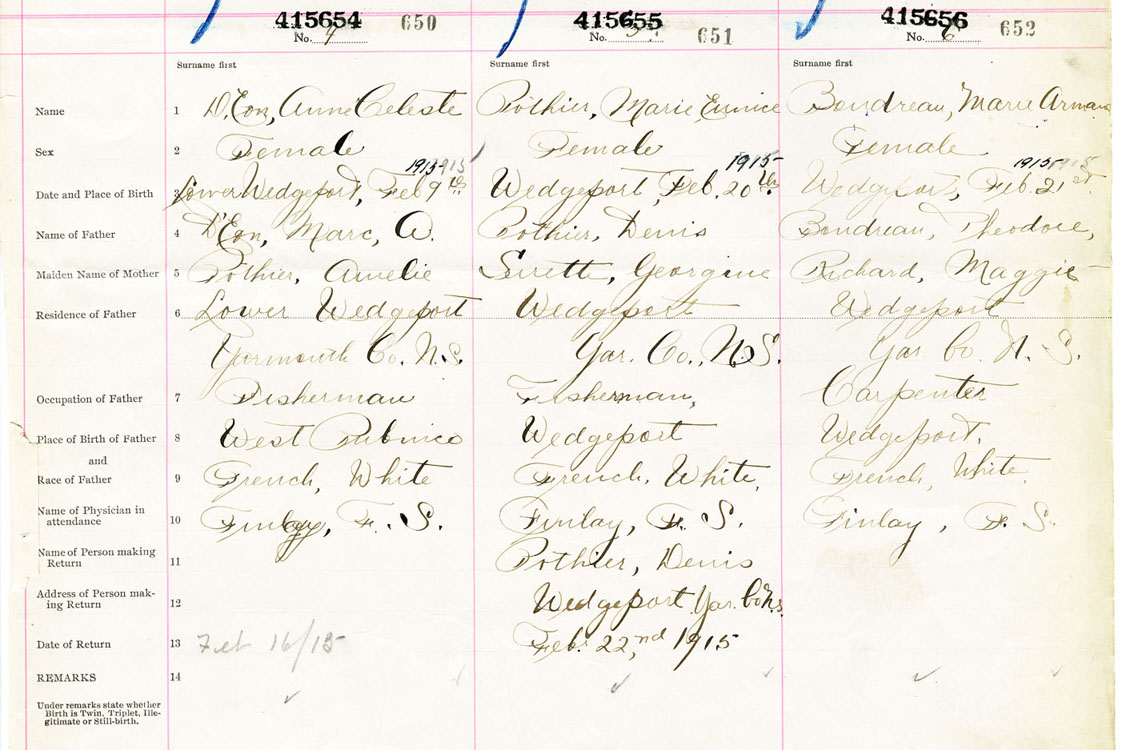 415654 650 415655 651 415656 652
No. 4 No. 5 No. 6
Surname first Surname first Surname first
Name 1 D'Eon, Anne Celeste Pothier, Marie Eunice Boudreau, Marie Arman
Sex 2 Female Female Female
1915 1915 1915 1915
Date and Place of Birth 3 Lower Wedgeport, Feb 9th Wedgeport, Feb. 20th Wedgeport, Feb. 21st
Name of Father 4 D'Eon, Marc, A. Pothier, Denis Boudreau, Theodore,
Maiden Name of Mother 5 Pothier, Amelie Surette, Georgine Richard, Maggie
Residence of Father 6 Lower Wedgeport Wedgeport Wedgeport
Yarmouth Co. N.S. Yar. Co., N.S. Yar. Co. N.S.
Occupation of Father 7 Fisherman Fisherman, Carpenter
Place of Birth of Father 8 West Pubnico Wedgeport Wedgeport.
and
Race of Father 9 French, White French, White, French, White
Name of Physician in
attendance 10 Finlay, F. S. Finlay, F. S. Finlay, F. S.
Name of Person making
Return 11 Pothier, Denis
Address of Person mak-
ing Return 12 Wedgeport Yar. Co N.S.
Date of Return 13 Feb 16/15 Feb. 22,nd 1915
REMARKS 14
Under remarks state whether
Birth is Twin, Triplet, Ille-
gitimate or Still-birth.